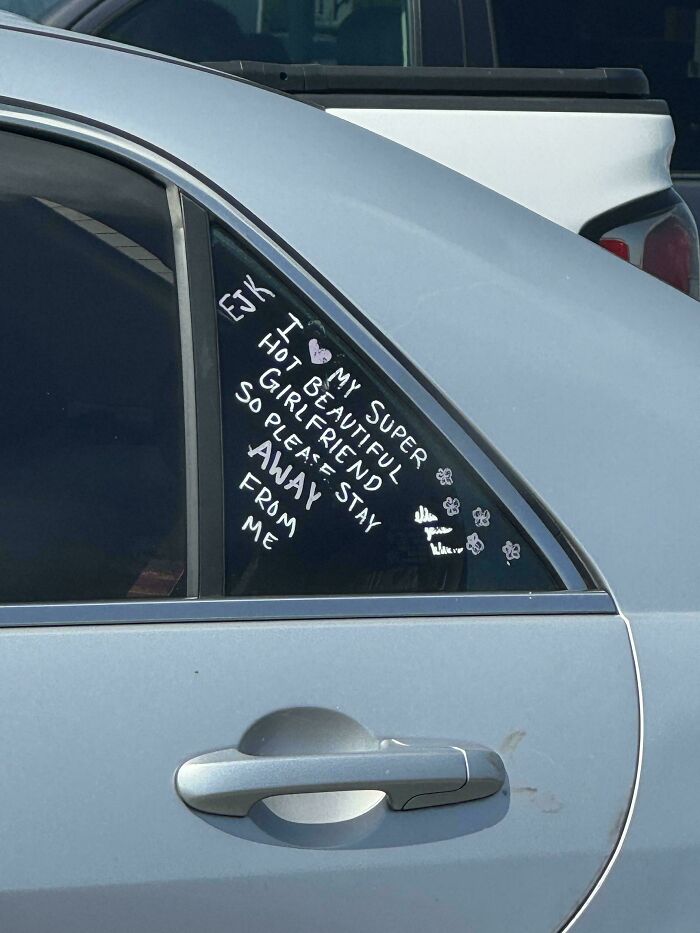 EJK
I ♥ MY SUPER
HOT BEAUTIFUL
GIRLFRIEND
SO PLEASE STAY
AWAY
FROM
ME